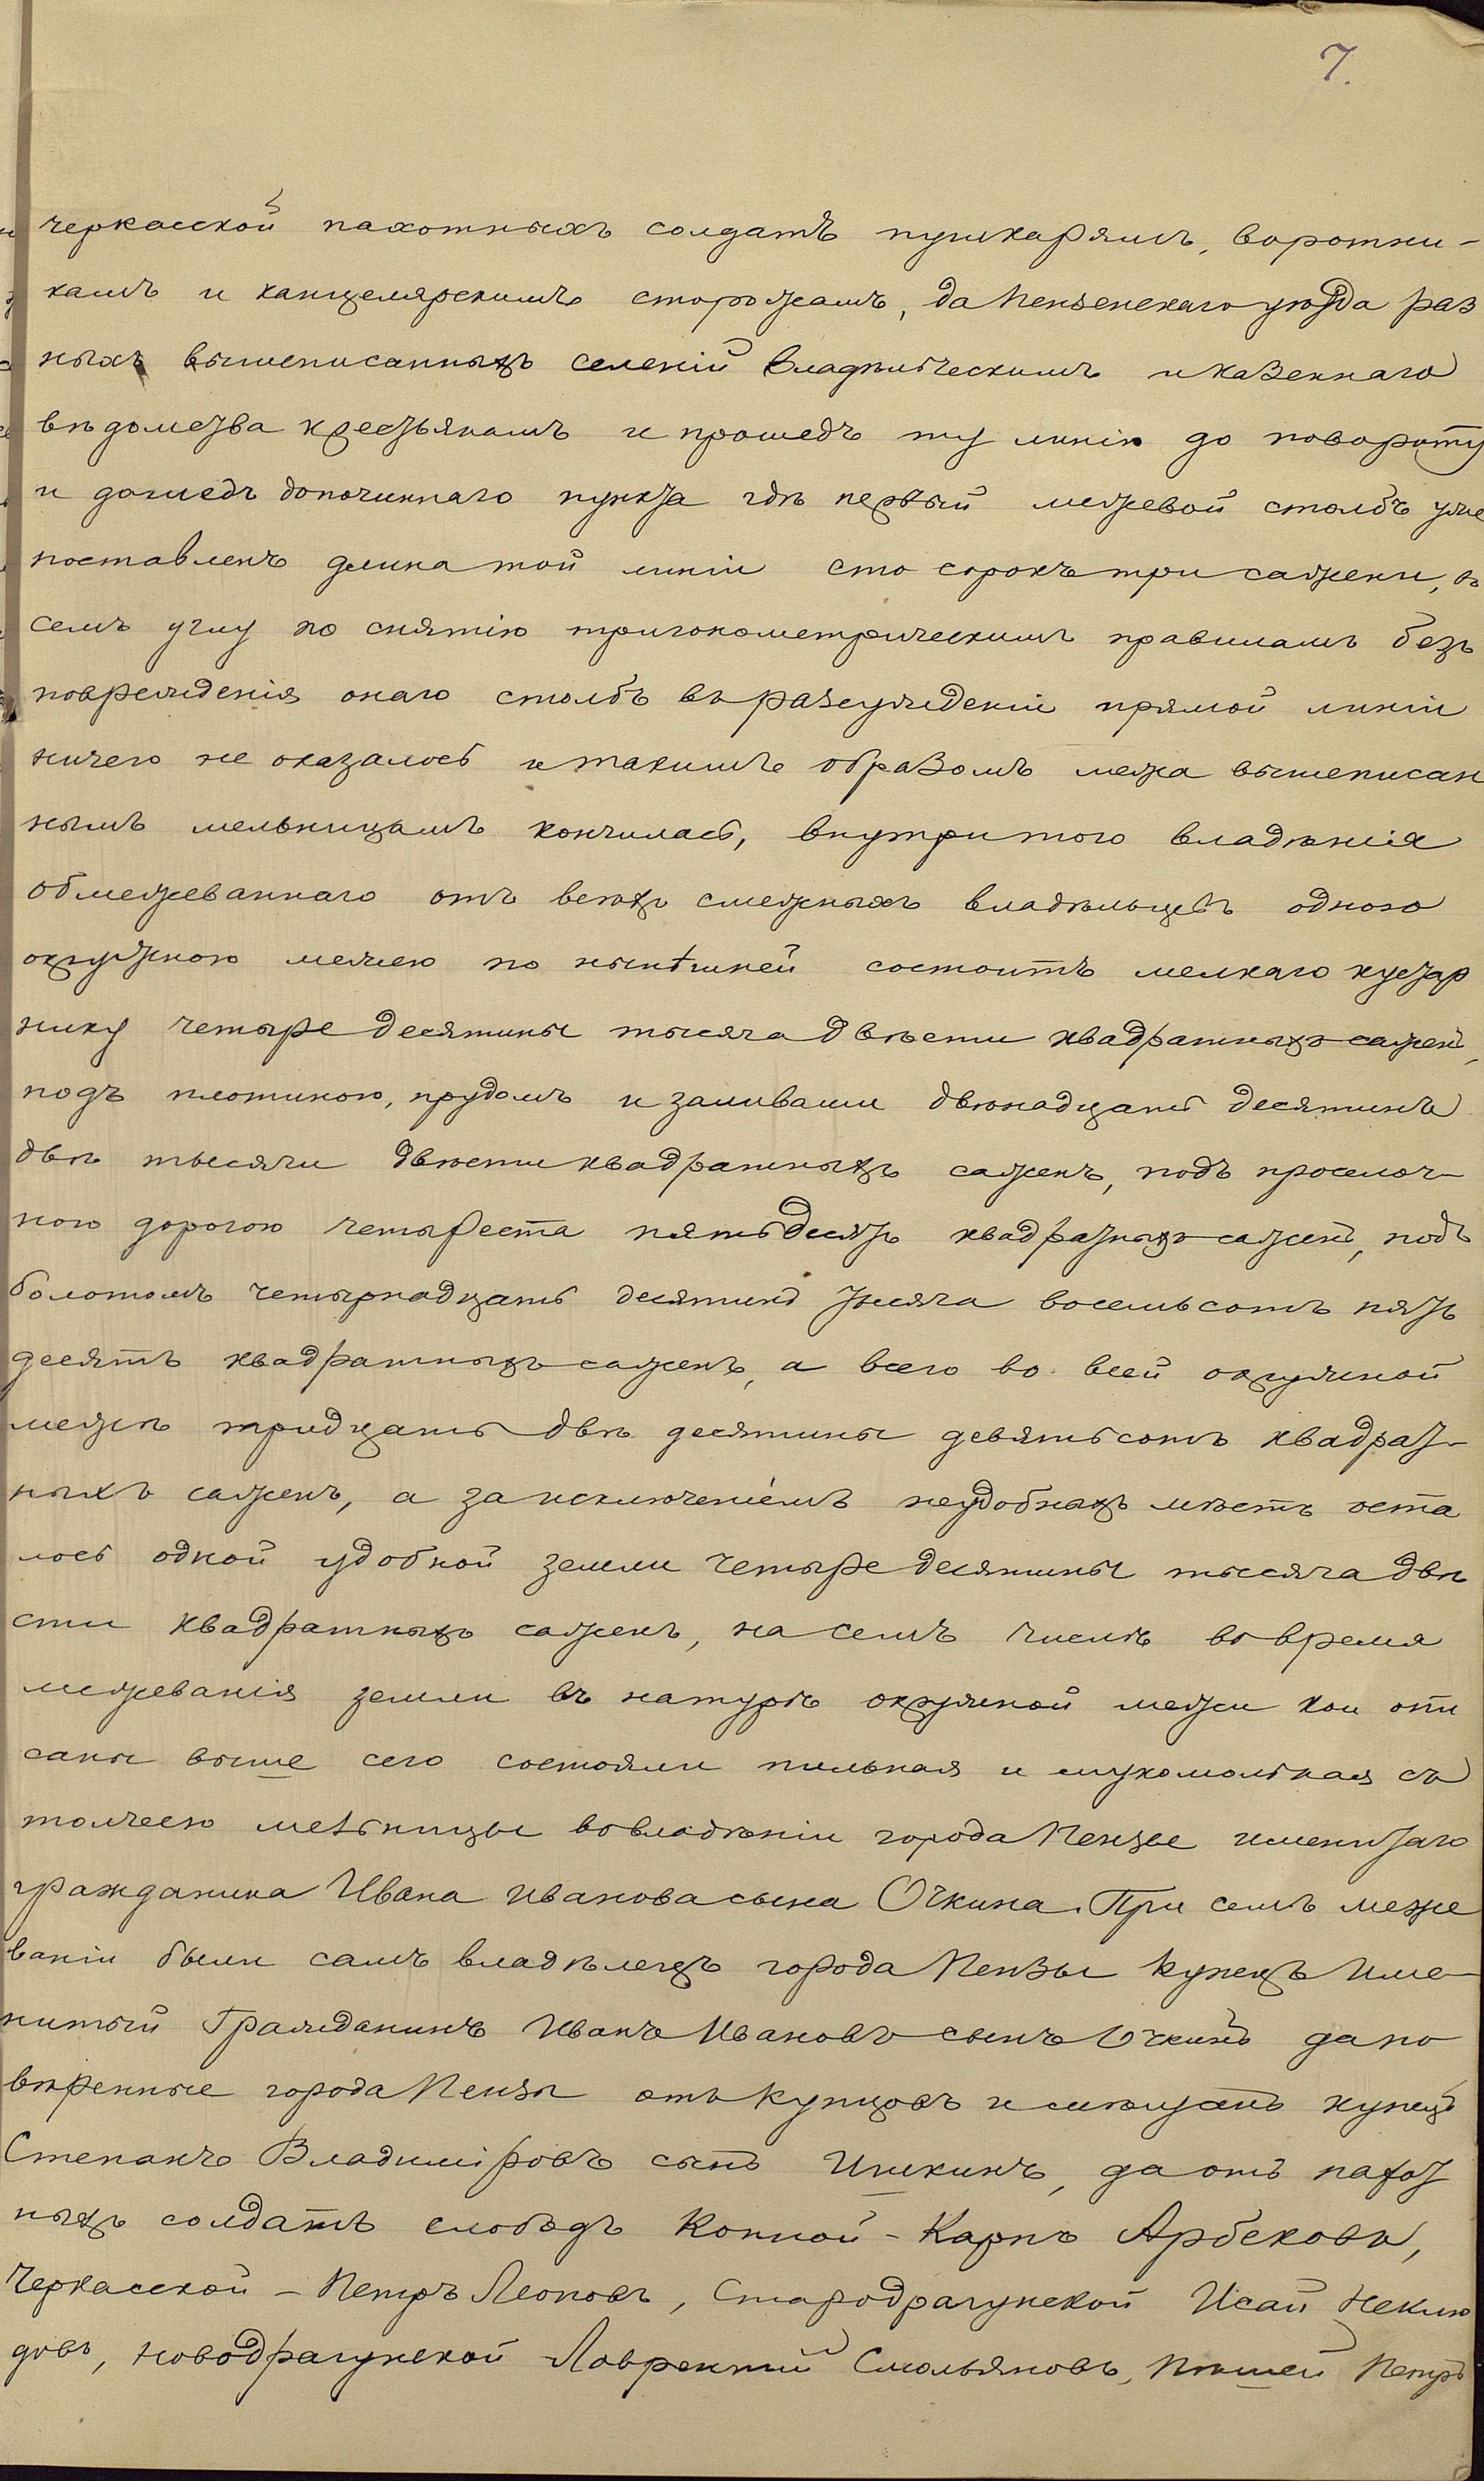 7.
черкасской пахотныхъ солдатъ пушкарямъ, воротни-
камъ и канцелярскимъ сторожамъ, да Пензенскаго уѣзда раз
ныхъ вышеписанныхъ селеній владѣльческимъ и казеннаго
вѣдомства крестьянамъ и прошедъ ту линію до повороту
и дошедъ до починнаго пункта гдѣ первый межевой столбъ уже
поставленъ длина той линіи сто сорокъ три сажени, въ
семъ углу по снятію тригонометрическимъ правиламъ безъ
поврежденія онаго столбъ въ разсужденіи прямой линіи
ничего не оказалось и такимъ образомъ межа вышеписан
нымъ мельницамъ кончилась, внутри того владѣнія
обмежеваннаго отъ всѣхъ смежныхъ владѣльцевъ одного
окружною межею по нынѣшней состоитъ мелкаго кустар
нику четыре десятины тысяча двѣсти квадратныхъ сажень,
подъ плотиною, прудомъ и заливами двѣнадцать десятинъ
двѣ тысячи двѣсти квадратныхъ саженъ, подъ проселоч-
ною дорогою четыреста пятьдесятъ квадратныхъ сажень, подъ
болотомъ четырнадцать десятинъ тысяча восемьсотъ пять
десятъ квадратныхъ саженъ, а всего во всей окружной
межѣ тридцать двѣ десятины девятьсотъ квадрат-
ныхъ саженъ, а за исключеніемъ неудобныхъ мѣстъ оста
лось одной удобной земли четыре десятины тысяча двѣ
сти квадратныхъ саженъ, на семъ числѣ во время
межеванія земли въ натурѣ окружной межи кои опи
саны выше сего состояли пильная и мукомольная съ
толчеею мельницы во владѣніи города Пензы именитаго
гражданина Ивана Иванова сына Очкина. При семъ меже
ваніи были самъ владѣлецъ города Пензы купецъ Име-
нитый Гражданинъ Иванъ Ивановъ сынъ Очкинъ да по
вѣренные города Пензы отъ купцовъ и мѣщанъ купецъ
Степанъ Владиміровъ сынъ Ишкинъ, да отъ пахот
ныхъ солдатъ слободъ Конной - Карпъ Арбековъ,
Черкасской - Петръ Леоновъ, Стародрагунской Исай Неклю
довъ, новодрагунской Лаврентій Смольяновъ, Пѣшей Петръ